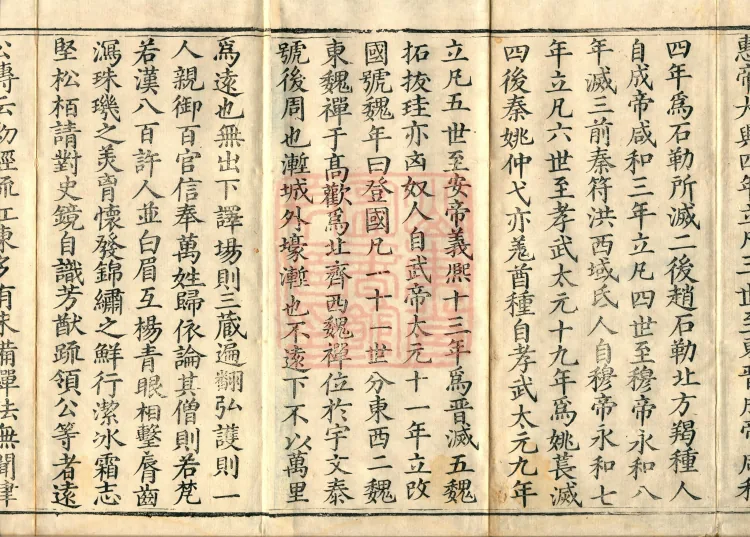 惠帝大興四年立凡三世至東晉成帝咸和
四年爲石勒所滅二後趙石勒北方羯種人
自成帝咸和三年立凡四世至穆帝永和八
年滅三前秦符洪西域氐人自穆帝永和七
年立凡六世至孝武太元十九年爲姚萇滅
四後秦姚仲弋亦羗酋種自孝武太元九年
立凡五世至安帝義熙十三年爲晉滅五魏
拓拔珪亦匈奴人自武帝太元十一年立改
國號魏年曰登國凡一十一世分東西二魏
東魏禪于高歡爲北齊西魏禪位於宇文泰
號後周也漸城外壕漸也不遠下不以萬里
爲遠也無出下譯場則三藏遍翻弘護則一
人親御百官信奉萬姓歸依論其僧則若梵
若漢八百許人並白眉互楊青眼相擊脣齒
瀉珠璣之美胷懷發錦繡之鮮行潔冰霜志
堅松栢請對史鏡自識芳猷疏領公等者遠
公傳云初經流江東多有未備禪法無聞律